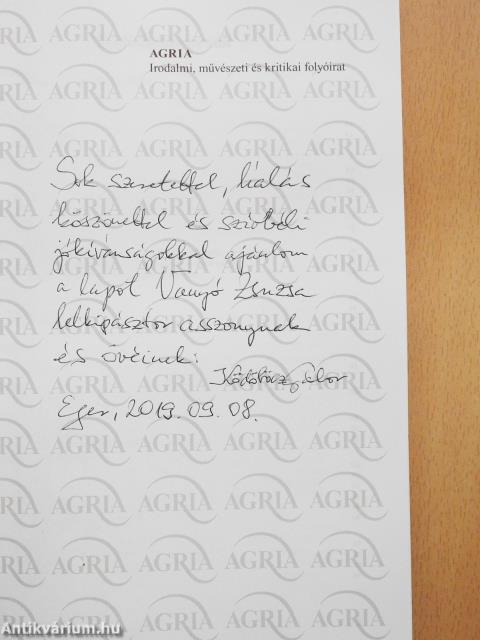 AGRIA
Irodalmi, művészeti és kritikai folyóirat
Sok szeretettel, hálás
köszönettel és szívbéli
jókívánságokkal ajánlom
a lapot Vanyó Zsuzsa
lelkipásztor asszonynak
és övéinek:
Ködöböcz Gábor
Eger, 2019. 09. 08.
AGRIA
Antikvárium.hu